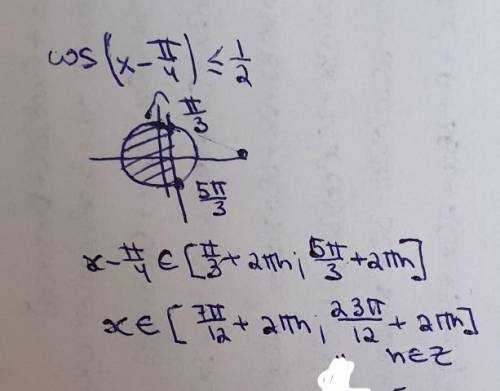 cos(x - π/4) ≤ 1/2
π/3
5π/3
x - π/4 ∈ [π/3 + 2πn; 5π/3 + 2πn]
x ∈ [7π/12 + 2πn; 23π/12 + 2πn]
n ∈ Z